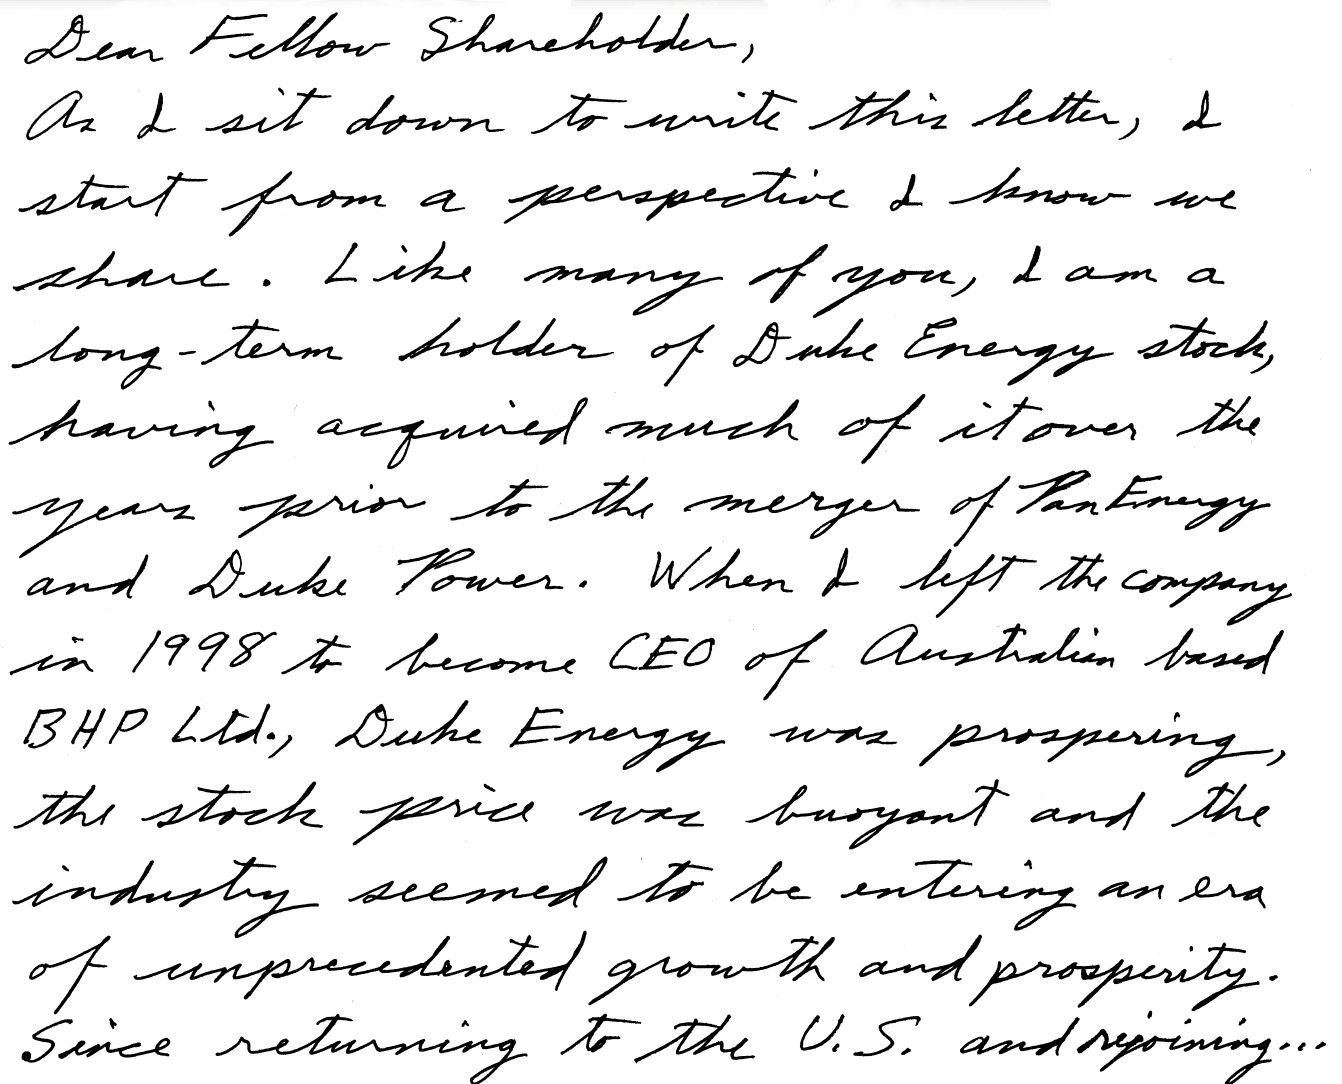 Dear Fellow Shareholder,
As I sit down to write this letter, I
start from a perspective I know we
share. Like many of you, I am a
long-term holder of Duke Energy stock,
having acquired much of it over the
years prior to the merger of PanEnergy
and Duke Power. When I left the company
in 1998 to become CEO of Australian based
BHP Ltd., Duke Energy was prospering,
the stock price was buoyant and the
industry seemed to be entering an era
of unprecedented growth and prosperity.
Since returning to the U.S. and rejoining...